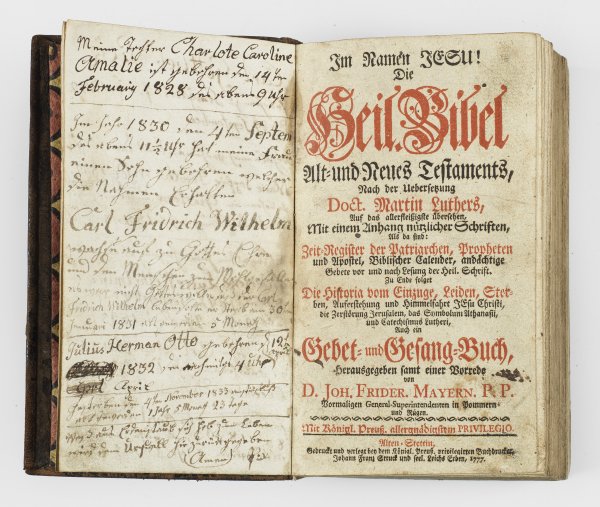 Meine Tochter Charlote Caroline
Amalie ist gebohren den 14ten
February 1828 des abens 9 uhr
Im Jahr 1830 den 4ten Septem
des abens 11½ uhr hat meine Frau
einen Sohn gebohren welcher
die Nahmen Erhalten
Carl Fridrich Wilhelm
wachse auf zu Gottes Ehre
und den Menschen zu
Fridrich Wilhelm
Januari 1831 5 Monath
Julius Herman Otto gebohren d 12
1832 4 uhr
April
4ten November 1833
1 Jahr 5 Monath 23 tage
zum Leben
(Amen)
Im Namen JESU!
Die
Heil. Bibel
Alt- und Neues Testaments,
Nach der Uebersetzung
Doct. Martin Luthers,
Auf das allerfleißigste übersehen,
Mit einem Anhang nützlicher Schriften,
Als da sind:
Zeit-Register der Patriarchen, Propheten
und Apostel, Biblischer Calender, andächtige
Gebete vor und nach Lesung der Heil. Schrift.
Zu Ende folget
Die Historia vom Einzuge, Leiden, Ster-
ben, Auferstehung und Himmelfahrt JEsu Christi,
die Zerstörung Jerusalem, das Symbolum Athanasii,
und Catechismus Lutheri,
Auch ein
Gebet- und Gesang-Buch,
Herausgegeben samt einer Vorrede
von
D. JOH. FRIDER. MAYERN. P. P.
Vormaligen General-Superintendenten in Pommern
und Rügen.
Mit Königl. Preuß. allergnädigstem PRIVILEGIO.
Alten-Stettin,
Gedruckt und verlegt bey dem Königl. Preuß. privilegirten Buchdrucker,
Johann Franz Struck und seel. Leichs Erben, 1777.